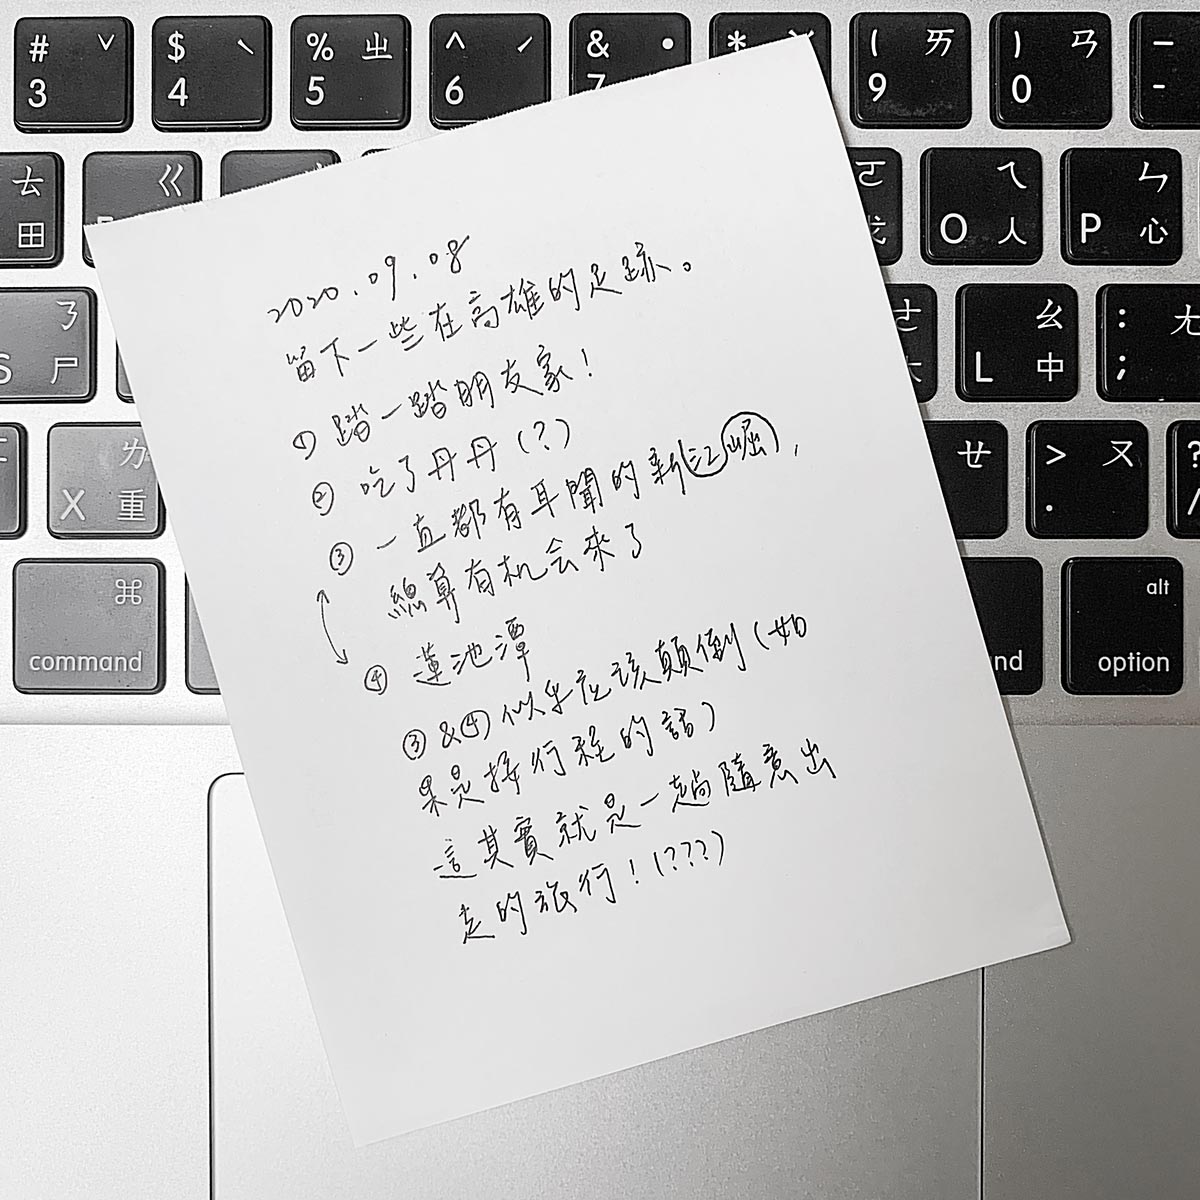 # ˇ 3
$ ˋ 4
% ㄓ 5
^ ˊ 6
& ˙ 7
*
( ㄞ 9
) ㄢ 0
- 
ㄊ 田
ㄍ
ㄛ
ㄟ O 人
ㄣ P 心
ㄋ S 尸
ㄜ 大
ㄠ L 中
: ㄤ ;
ㄌ X 重
ㄝ
> ㄡ .
? /
⌘ command
alt option
2020.09.08
留下一些在高雄的足跡。
① 踏一踏朋友家!
② 吃了丹丹(?)
③ 一直都有耳聞的新江崛,
總算有机会來了
④ 蓮池潭
③&④似乎应该顛倒(如
果是按行程的話)
這其實就是一趟隨意出
走的旅行!(???)